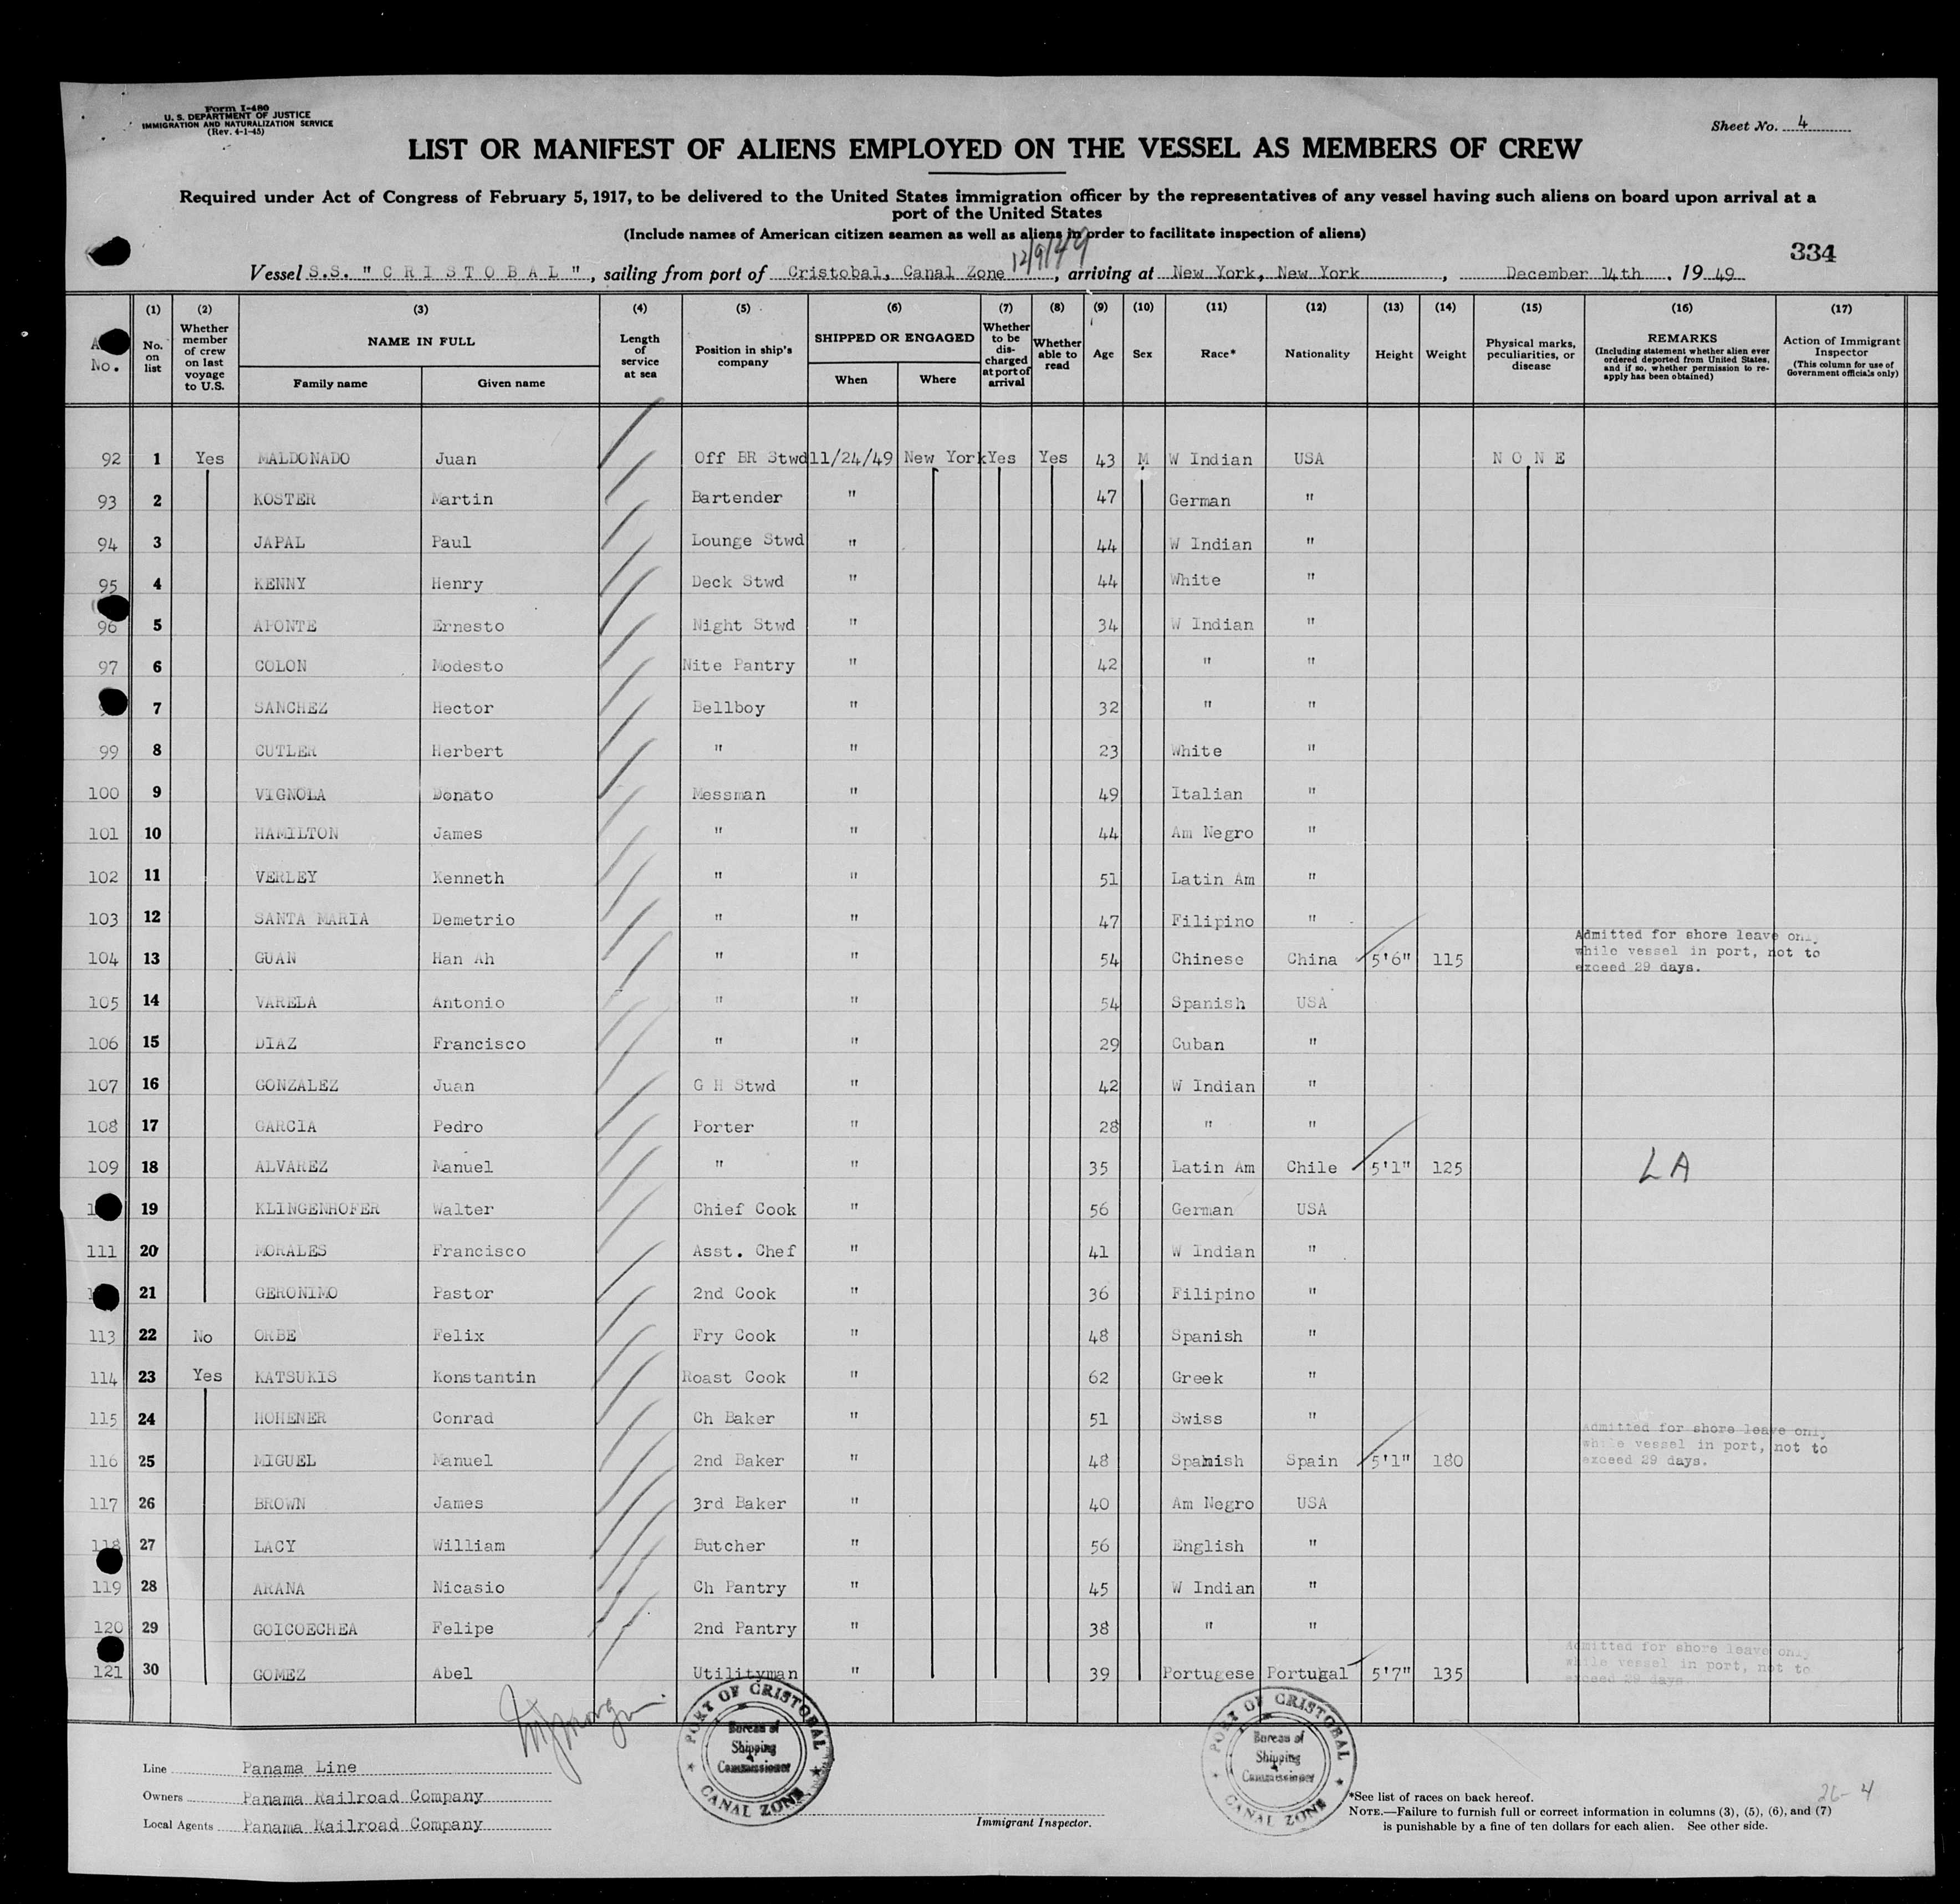 Form I-480
U. S. DEPARTMENT OF JUSTICE
IMMIGRATION AND NATURALIZATION SERVICE
(Rev. 4-1-45)
Sheet No. 4
LIST OR MANIFEST OF ALIENS EMPLOYED ON THE VESSEL AS MEMBERS OF CREW
Required under Act of Congress of February 5, 1917, to be delivered to the United States immigration officer by the representatives of any vessel having such aliens on board upon arrival at a
port of the United States
(Include names of American citizen seamen as well as aliens in order to facilitate inspection of aliens)
12/9/49
334
Vessel S.S. " C R I S T O B A L ", sailing from port of Cristobal, Canal Zone, arriving at New York, New York, December 14th, 19 49
(1) (2) (3) (4) (5) (6) (7) (8) (9) (10) (11) (12) (13) (14) (15) (16) (17)
No. No. on list Whether member of crew on last voyage to U.S. NAME IN FULL Family name Given name Length of service at sea Position in ship's company SHIPPED OR ENGAGED When Where Whether to be discharged at port of arrival Whether able to read Age Sex Race* Nationality Height Weight Physical marks, peculiarities, or disease REMARKS (Including statement whether alien ever ordered deported from United States, and if so, whether permission to re-apply has been obtained) Action of Immigrant Inspector (This column for use of Government officials only)
92 1 Yes MALDONADO Juan Off BR Stwd 11/24/49 New York Yes Yes 43 M W Indian USA N O N E
93 2 KOSTER Martin Bartender " 47 German "
94 3 JAPAL Paul Lounge Stwd " 44 W Indian "
95 4 KENNY Henry Deck Stwd " 44 White "
96 5 APONTE Ernesto Night Stwd " 34 W Indian "
97 6 COLON Modesto Nite Pantry " 42 " "
7 SANCHEZ Hector Bellboy " 32 " "
99 8 CUTLER Herbert " " 23 White "
100 9 VIGNOLA Donato Messman " 49 Italian "
101 10 HAMILTON James " " 44 Am Negro "
102 11 VERLEY Kenneth " " 51 Latin Am "
103 12 SANTA MARIA Demetrio " " 47 Filipino "
104 13 GUAN Han Ah " " 54 Chinese China 5'6" 115 Admitted for shore leave only while vessel in port, not to exceed 29 days.
105 14 VARELA Antonio " " 54 Spanish USA
106 15 DIAZ Francisco " " 29 Cuban "
107 16 GONZALEZ Juan G H Stwd " 42 W Indian "
108 17 GARCIA Pedro Porter " 28 " "
109 18 ALVAREZ Manuel " " 35 Latin Am Chile 5'1" 125 LA
19 KLINGENHOFER Walter Chief Cook " 56 German USA
111 20 MORALES Francisco Asst. Chef " 41 W Indian "
21 GERONIMO Pastor 2nd Cook " 36 Filipino "
113 22 No ORBE Felix Fry Cook " 48 Spanish "
114 23 Yes KATSUKIS Konstantin Roast Cook " 62 Greek "
115 24 HOHENER Conrad Ch Baker " 51 Swiss "
116 25 MIGUEL Manuel 2nd Baker " 48 Spanish Spain 5'1" 180 Admitted for shore leave only while vessel in port, not to exceed 29 days.
117 26 BROWN James 3rd Baker " 40 Am Negro USA
118 27 LACY William Butcher " 56 English "
119 28 ARANA Nicasio Ch Pantry " 45 W Indian "
120 29 GOICOECHEA Felipe 2nd Pantry " 38 " "
121 30 GOMEZ Abel Utilityman " 39 Portugese Portugal 5'7" 135 Admitted for shore leave only while vessel in port, not to exceed 29 days
PORT OF CRISTOBAL
Bureau of
Shipping
Commissioner
CANAL ZONE
PORT OF CRISTOBAL
Bureau of
Shipping
Commissioner
CANAL ZONE
Line Panama Line
Owners Panama Railroad Company
Local Agents Panama Railroad Company
Immigrant Inspector.
26-4
*See list of races on back hereof.
NOTE.—Failure to furnish full or correct information in columns (3), (5), (6), and (7)
is punishable by a fine of ten dollars for each alien. See other side.